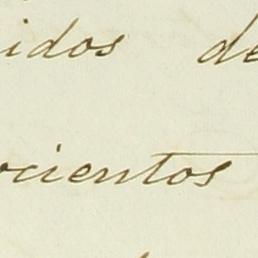 idos de
ocientos